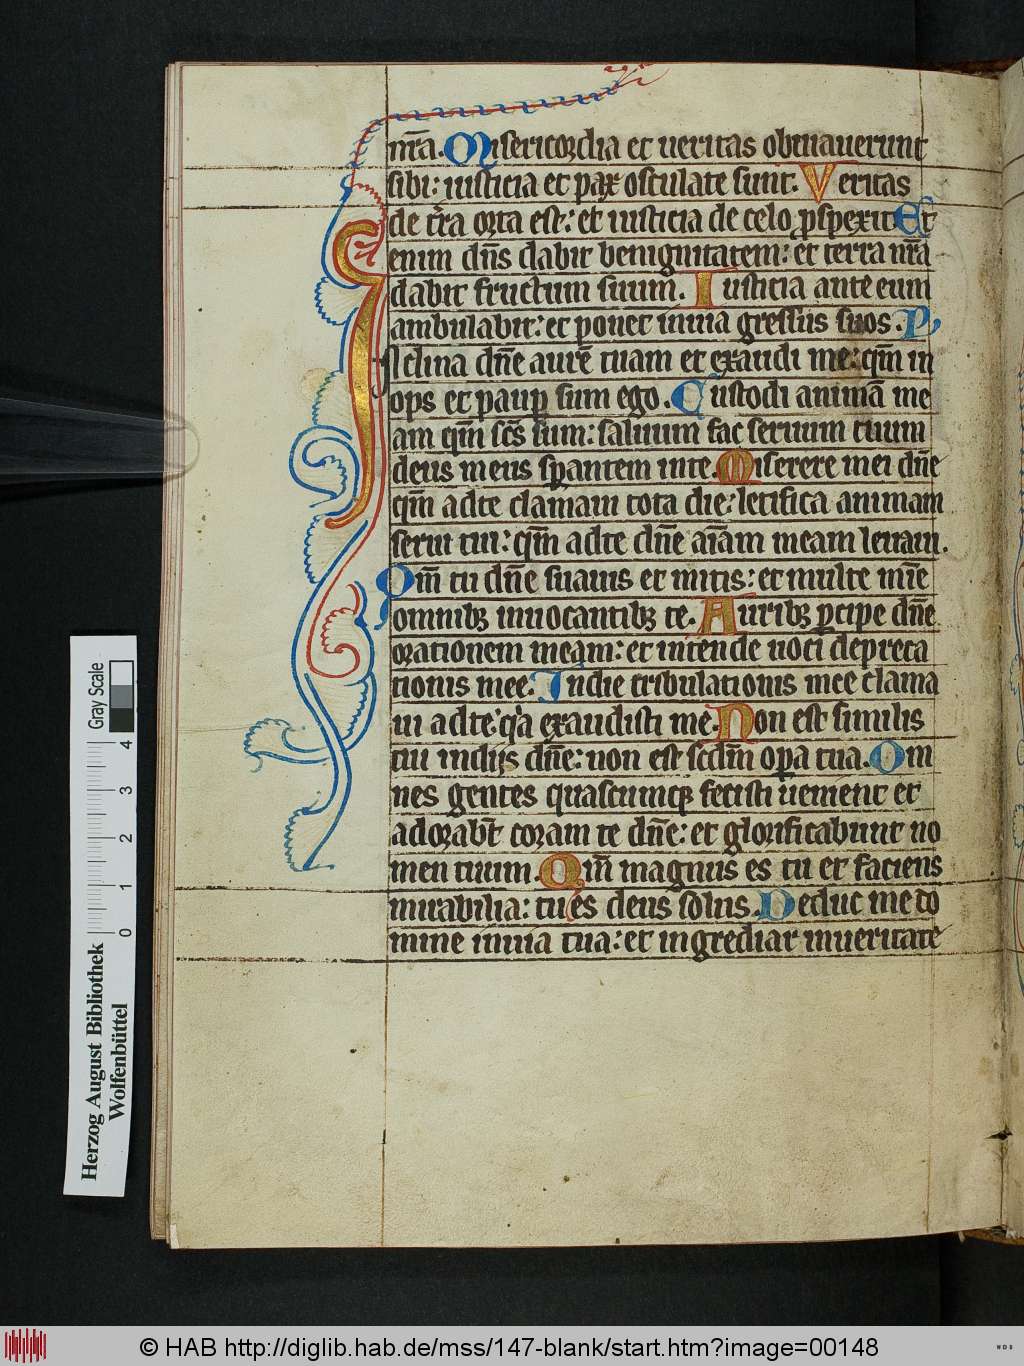 nr̄a. Misericordia et ueritas obuiauerunt
sibi: iusticia et pax osculate sunt. Veritas
de t̄ra orta est: et iusticia de celo ꝓspexit Et
enim dn̄s dabit benignitatem: et terra nr̄a
dabit fructum suum. Iusticia ante eum
ambulabit: et ponet in uia gressus suos.
Inclina dn̄e aurē tuam et exaudi me: qm̄ in
ops et paup̲ sum ego. Custodi animā me
am qm̄ sc̄s sum: saluum fac seruum tuum
deus meus sp̲antem in te. Miserere mei dn̄e
qm̄ ad te clamaui tota die: letifica animam
serui tui: qm̄ ad te dn̄e aīam meam leuaui.
Qm̄ tu dn̄e suauis et mitis: et multe mīe
omnibꝫ inuocantibꝫ te. Auribꝫ p̲cipe dn̄e
orationem meam: et intende uoci depreca
tionis mee. In die tribulationis mee clama
ui ad te: qͥa exaudisti me. Non est similis
tui in dijs dn̄e: non est scdm̄ op̲a tua. Om
nes gentes quascumqꝫ fecisti uenient et
adorabt̄ coram te dn̄e: et glorificabunt no
men tuum. Qm̄ magnus es tu et faciens
mirabilia: tu es deus solus. Deduc me do
mine in uia tua: et ingrediar in ueritate
Gray Scale
0 1 2 3 4
Herzog August Bibliothek
Wolfenbüttel
© HAB http://diglib.hab.de/mss/147-blank/start.htm?image=00148